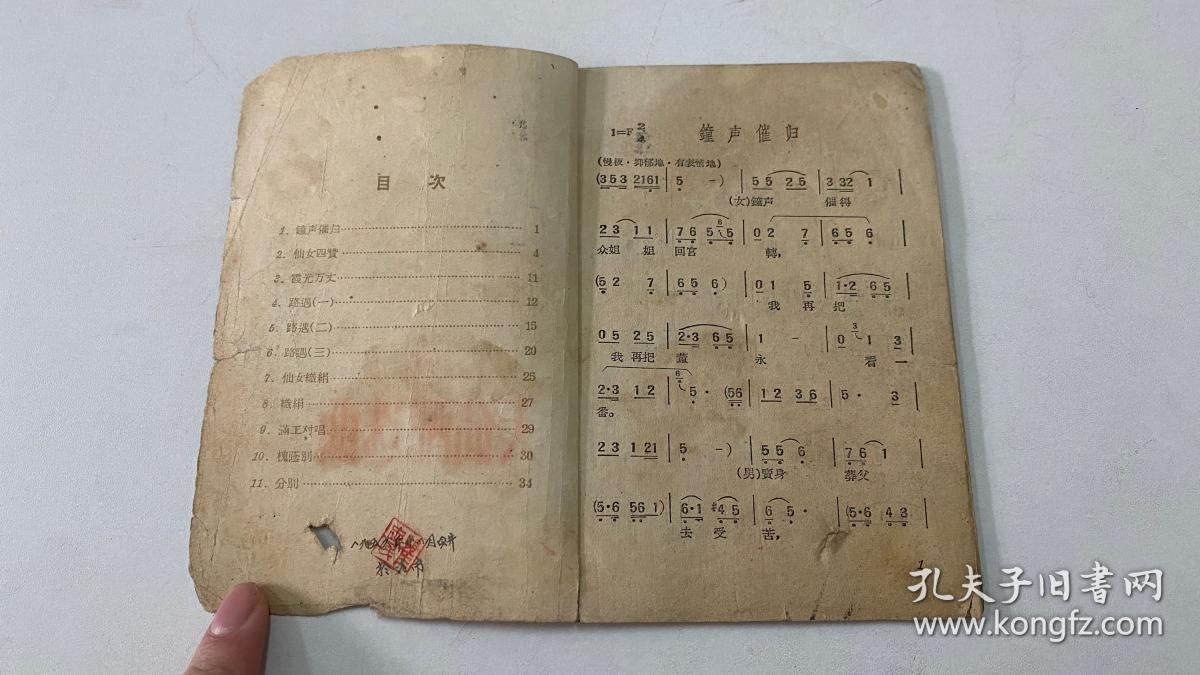 目 次
1. 鐘声催归 1
2. 仙女四贊 4
3. 霞光万丈 11
4. 路遇(一) 12
5. 路遇(二) 15
6. 路遇(三) 20
7. 仙女織絹 25
8. 織絹 27
9. 滿工对唱 29
10. 槐蔭別 30
11. 分別 34
1=F 2/4 鐘声催归
(慢板·抑郁地·有表情地)
(353 2161 | 5 -) | 55 25 | 3 32 1 |
(女)鐘声 催得
23 11 | 76 5 6 5 | 02 7 | 65 6 |
众姐 姐 回宮 轉,
(52 7 | 65 6) | 01 5 | 1·2 65 |
我 再 把
05 25 | 2·3 65 | 1 - | 0 3 1 3 |
我 再把 永 看 一
2·3 12 | 6 5· (56 | 12 36 | 5· 3 |
番。
23 121 | 5 -) | 55 6 | 76 1 |
(男)賣身 葬父
(5·6 561) | 6·1 #45 | 6 5· | (5·6 43 |
去 受 苦,
1
孔夫子旧書网
www.kongfz.com